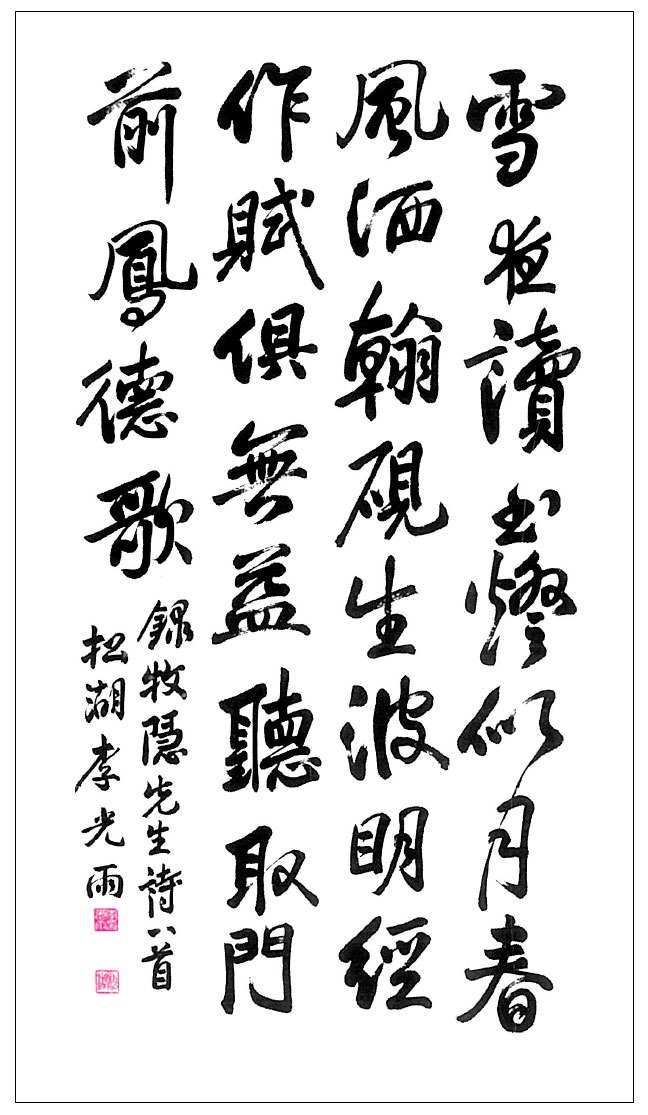 雪夜讀書燈似月春
風洒翰硯生波明經
作賦俱無益聽取門
前鳳德歌
錄牧隱先生詩一首
松湖李光雨